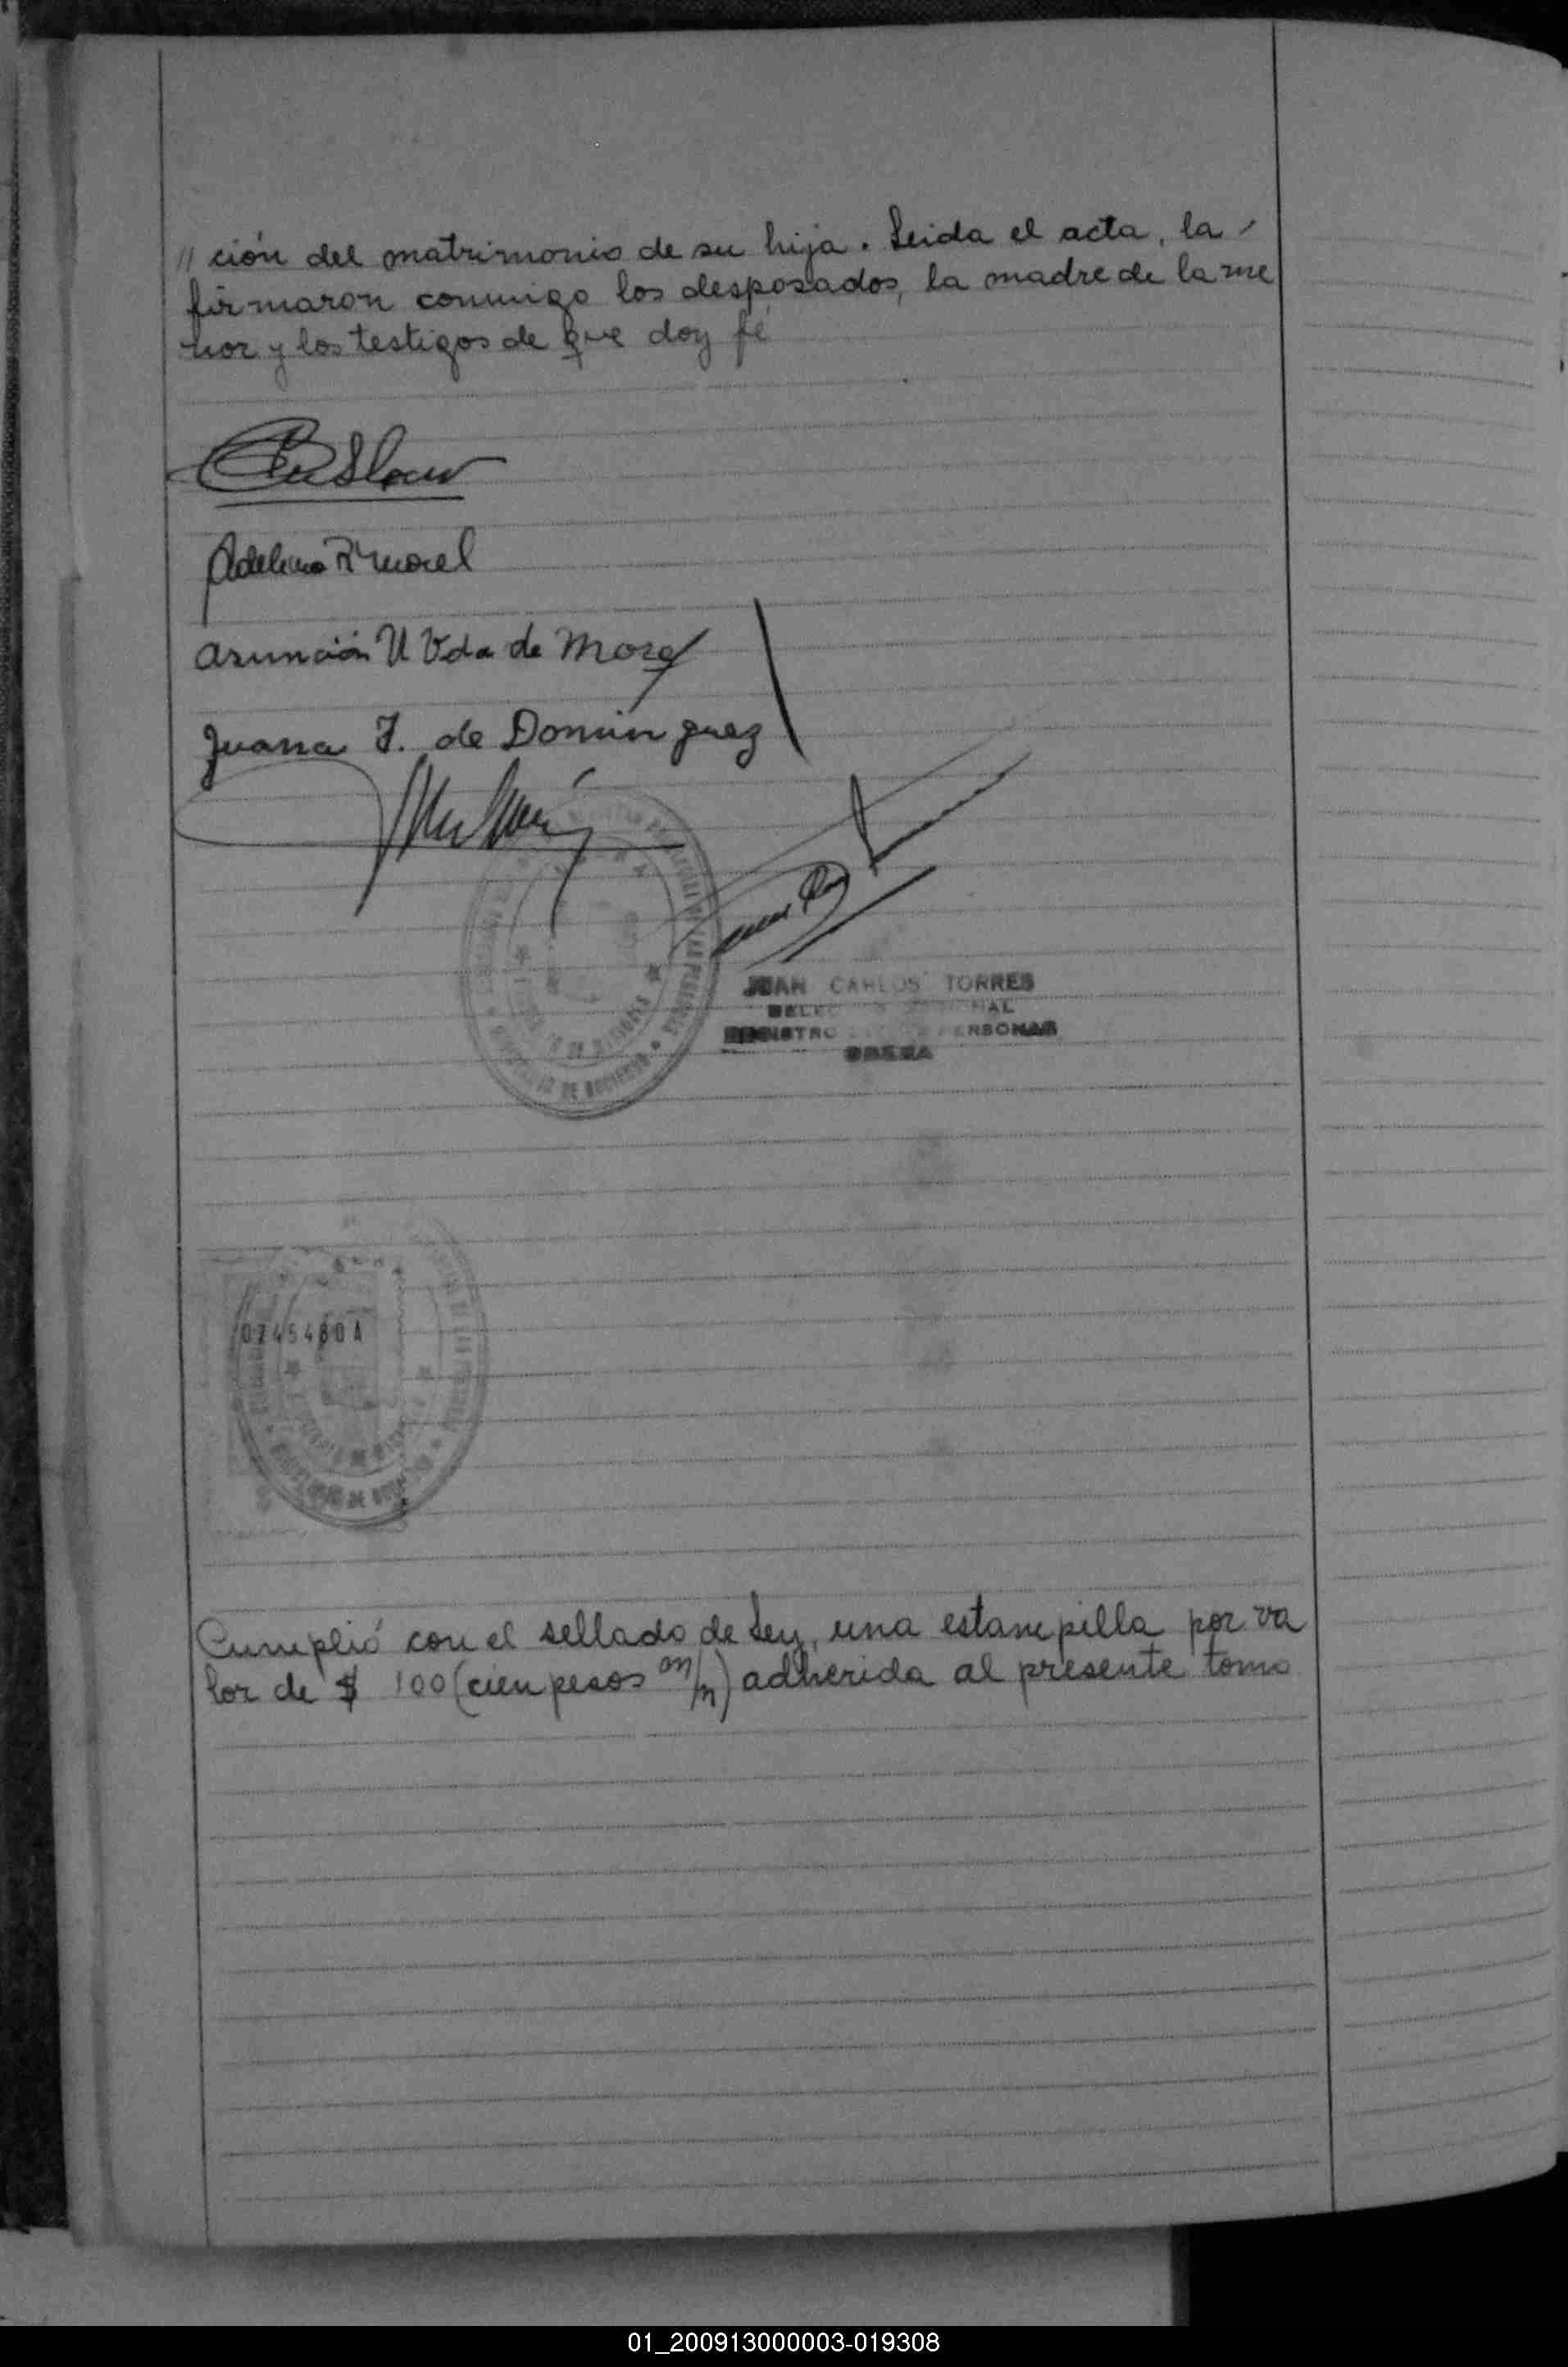 // ción del matrimonio de su hija. Leida el acta, la
firmaron conmigo los desposados, la madre de la me
nor y los testigos de que doy fé
Adelina R Morel
Asunción U Vda de Morel
Juana F. de Dominguez
JUAN CARLOS TORRES
REGISTRO PERSONAS
OBERA
0245480A
Cumplió con el sellado de Ley, una estampilla por va
lor de $ 100 (cien pesos m/n) adherida al presente tomo
01_200913000003-019308